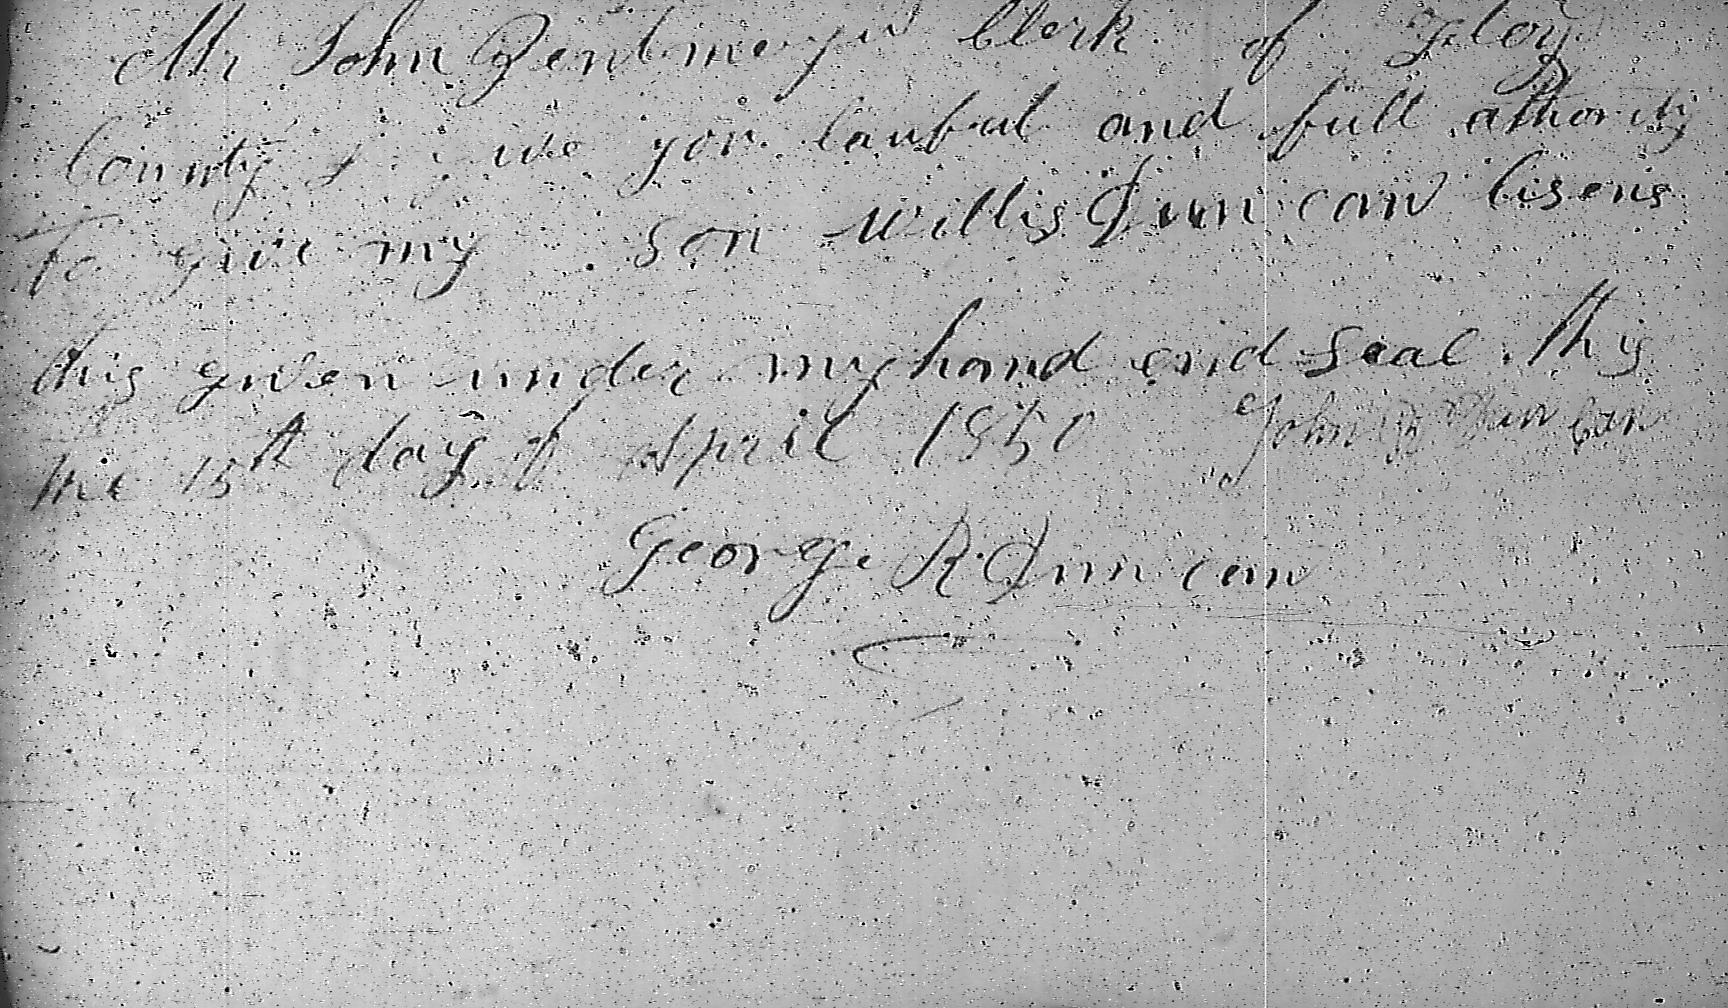 Mr John Zentmeyer Clerk of Floyd
County I give you lawful and full athority
To give my son Willis Duncan lisens
this given under my hand and seal this
the 15th day of April 1850 John Duncan
George R. Duncan